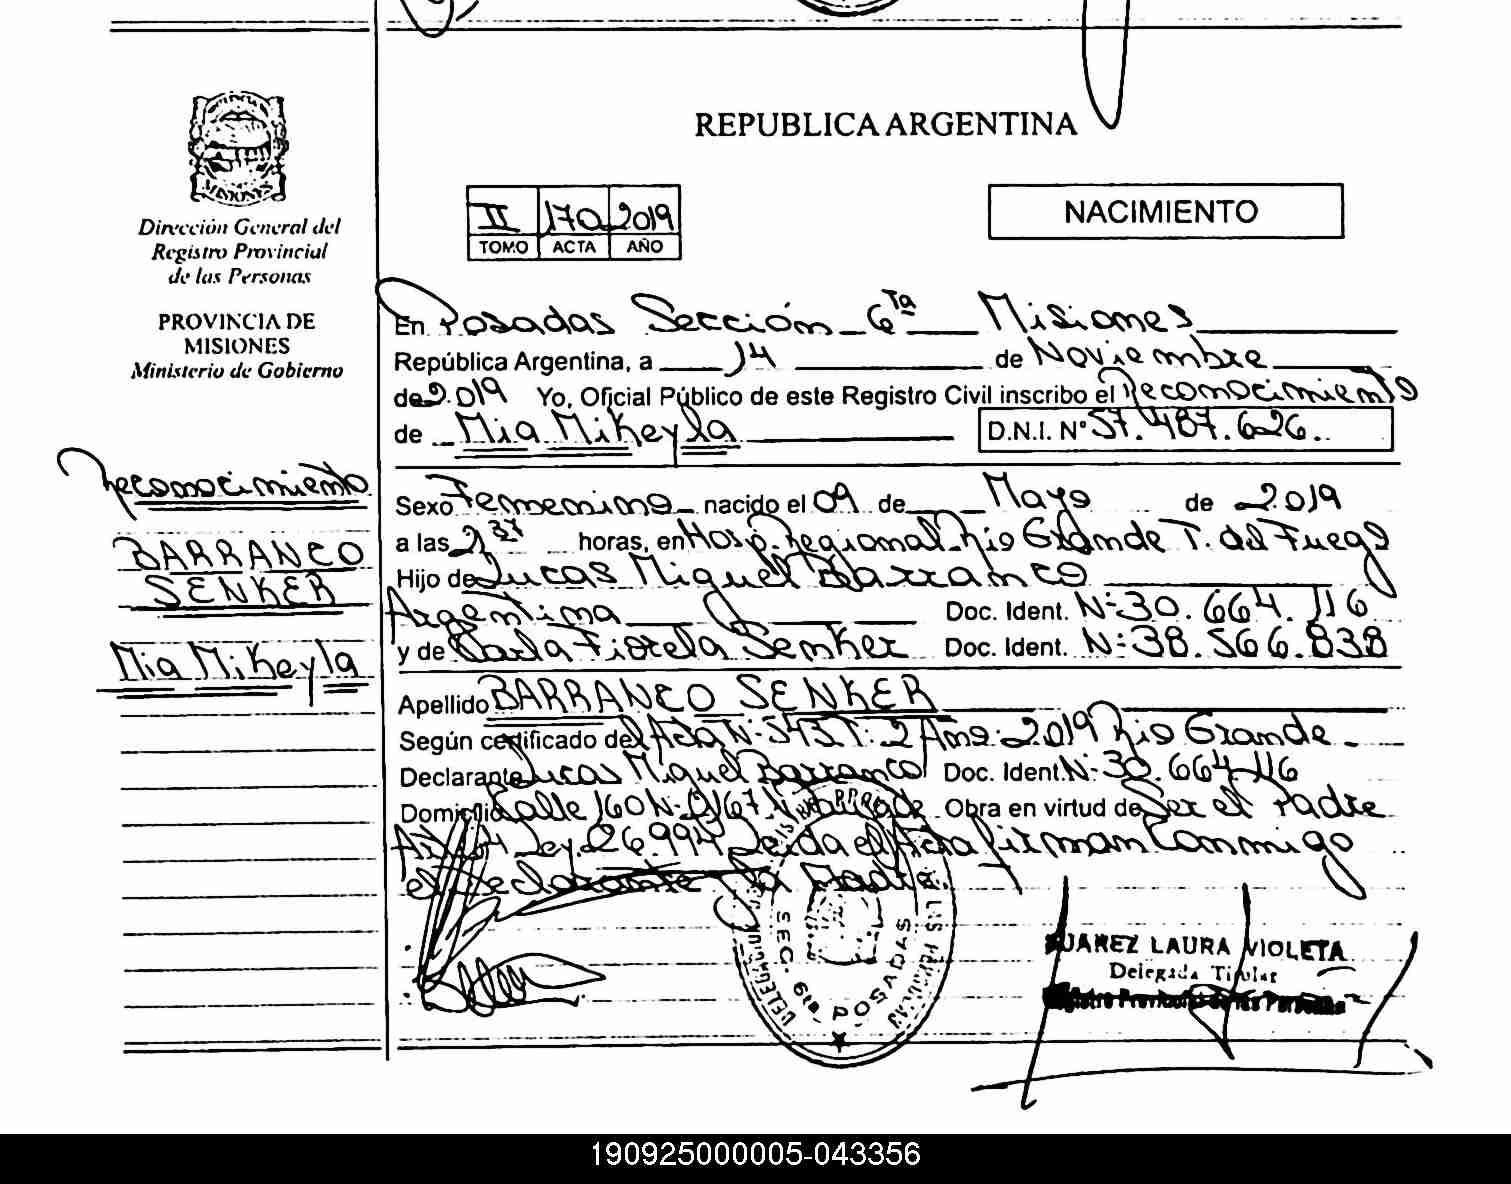 Dirección General del
Registro Provincial
de las Personas
PROVINCIA DE
MISIONES
Ministerio de Gobierno
Reconocimiento
BARRANCO
SENKER
Mia Mikeyla
REPUBLICA ARGENTINA
II 170 2019
TOMO ACTA AÑO
NACIMIENTO
En Posadas Sección 6ta Misiones
República Argentina, a 14 de Noviembre
de 2.019 Yo, Oficial Público de este Registro Civil inscribo el Reconocimiento
de Mia Mikeyla D.N.I. N° 57.487.626.
Sexo Femenino nacido el 09 de Mayo de 2.019
a las 2,37 horas, en Hosp. Regional Rio Grande T. del Fuego
Hijo de Lucas Miguel Barranco
Argentina Doc. Ident. N° 30.664.116
y de Carla Fiorela Senker Doc. Ident. N° 38.566.838
Apellido BARRANCO SENKER
Según certificado del Acta N° 543 T. 2 Año 2.019 Rio Grande
Declarante Lucas Miguel Barranco Doc. Ident. N° 30.664.116
Domicilio Calle 160 N° Obra en virtud de Ser el Padre
Ley 26.994 Leida el Acta firman Conmigo
el Declarante la Madre.
SEC. 6ta. POSADAS
SUAREZ LAURA VIOLETA
Delegada Titular
Registro Provincial de las Personas
190925000005-043356